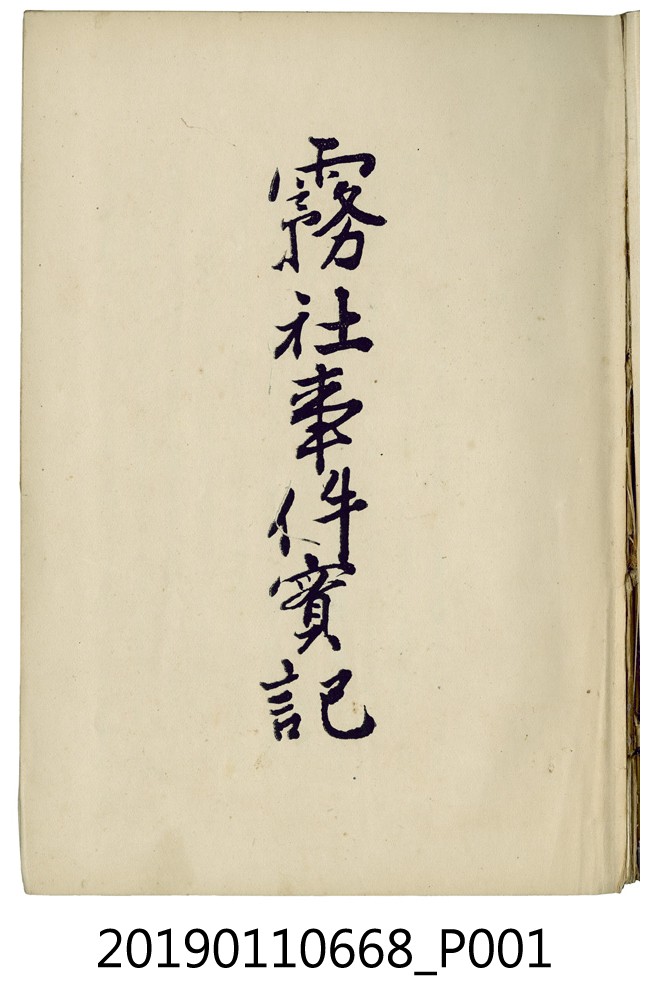 霧社事件實記
20190110668_P001